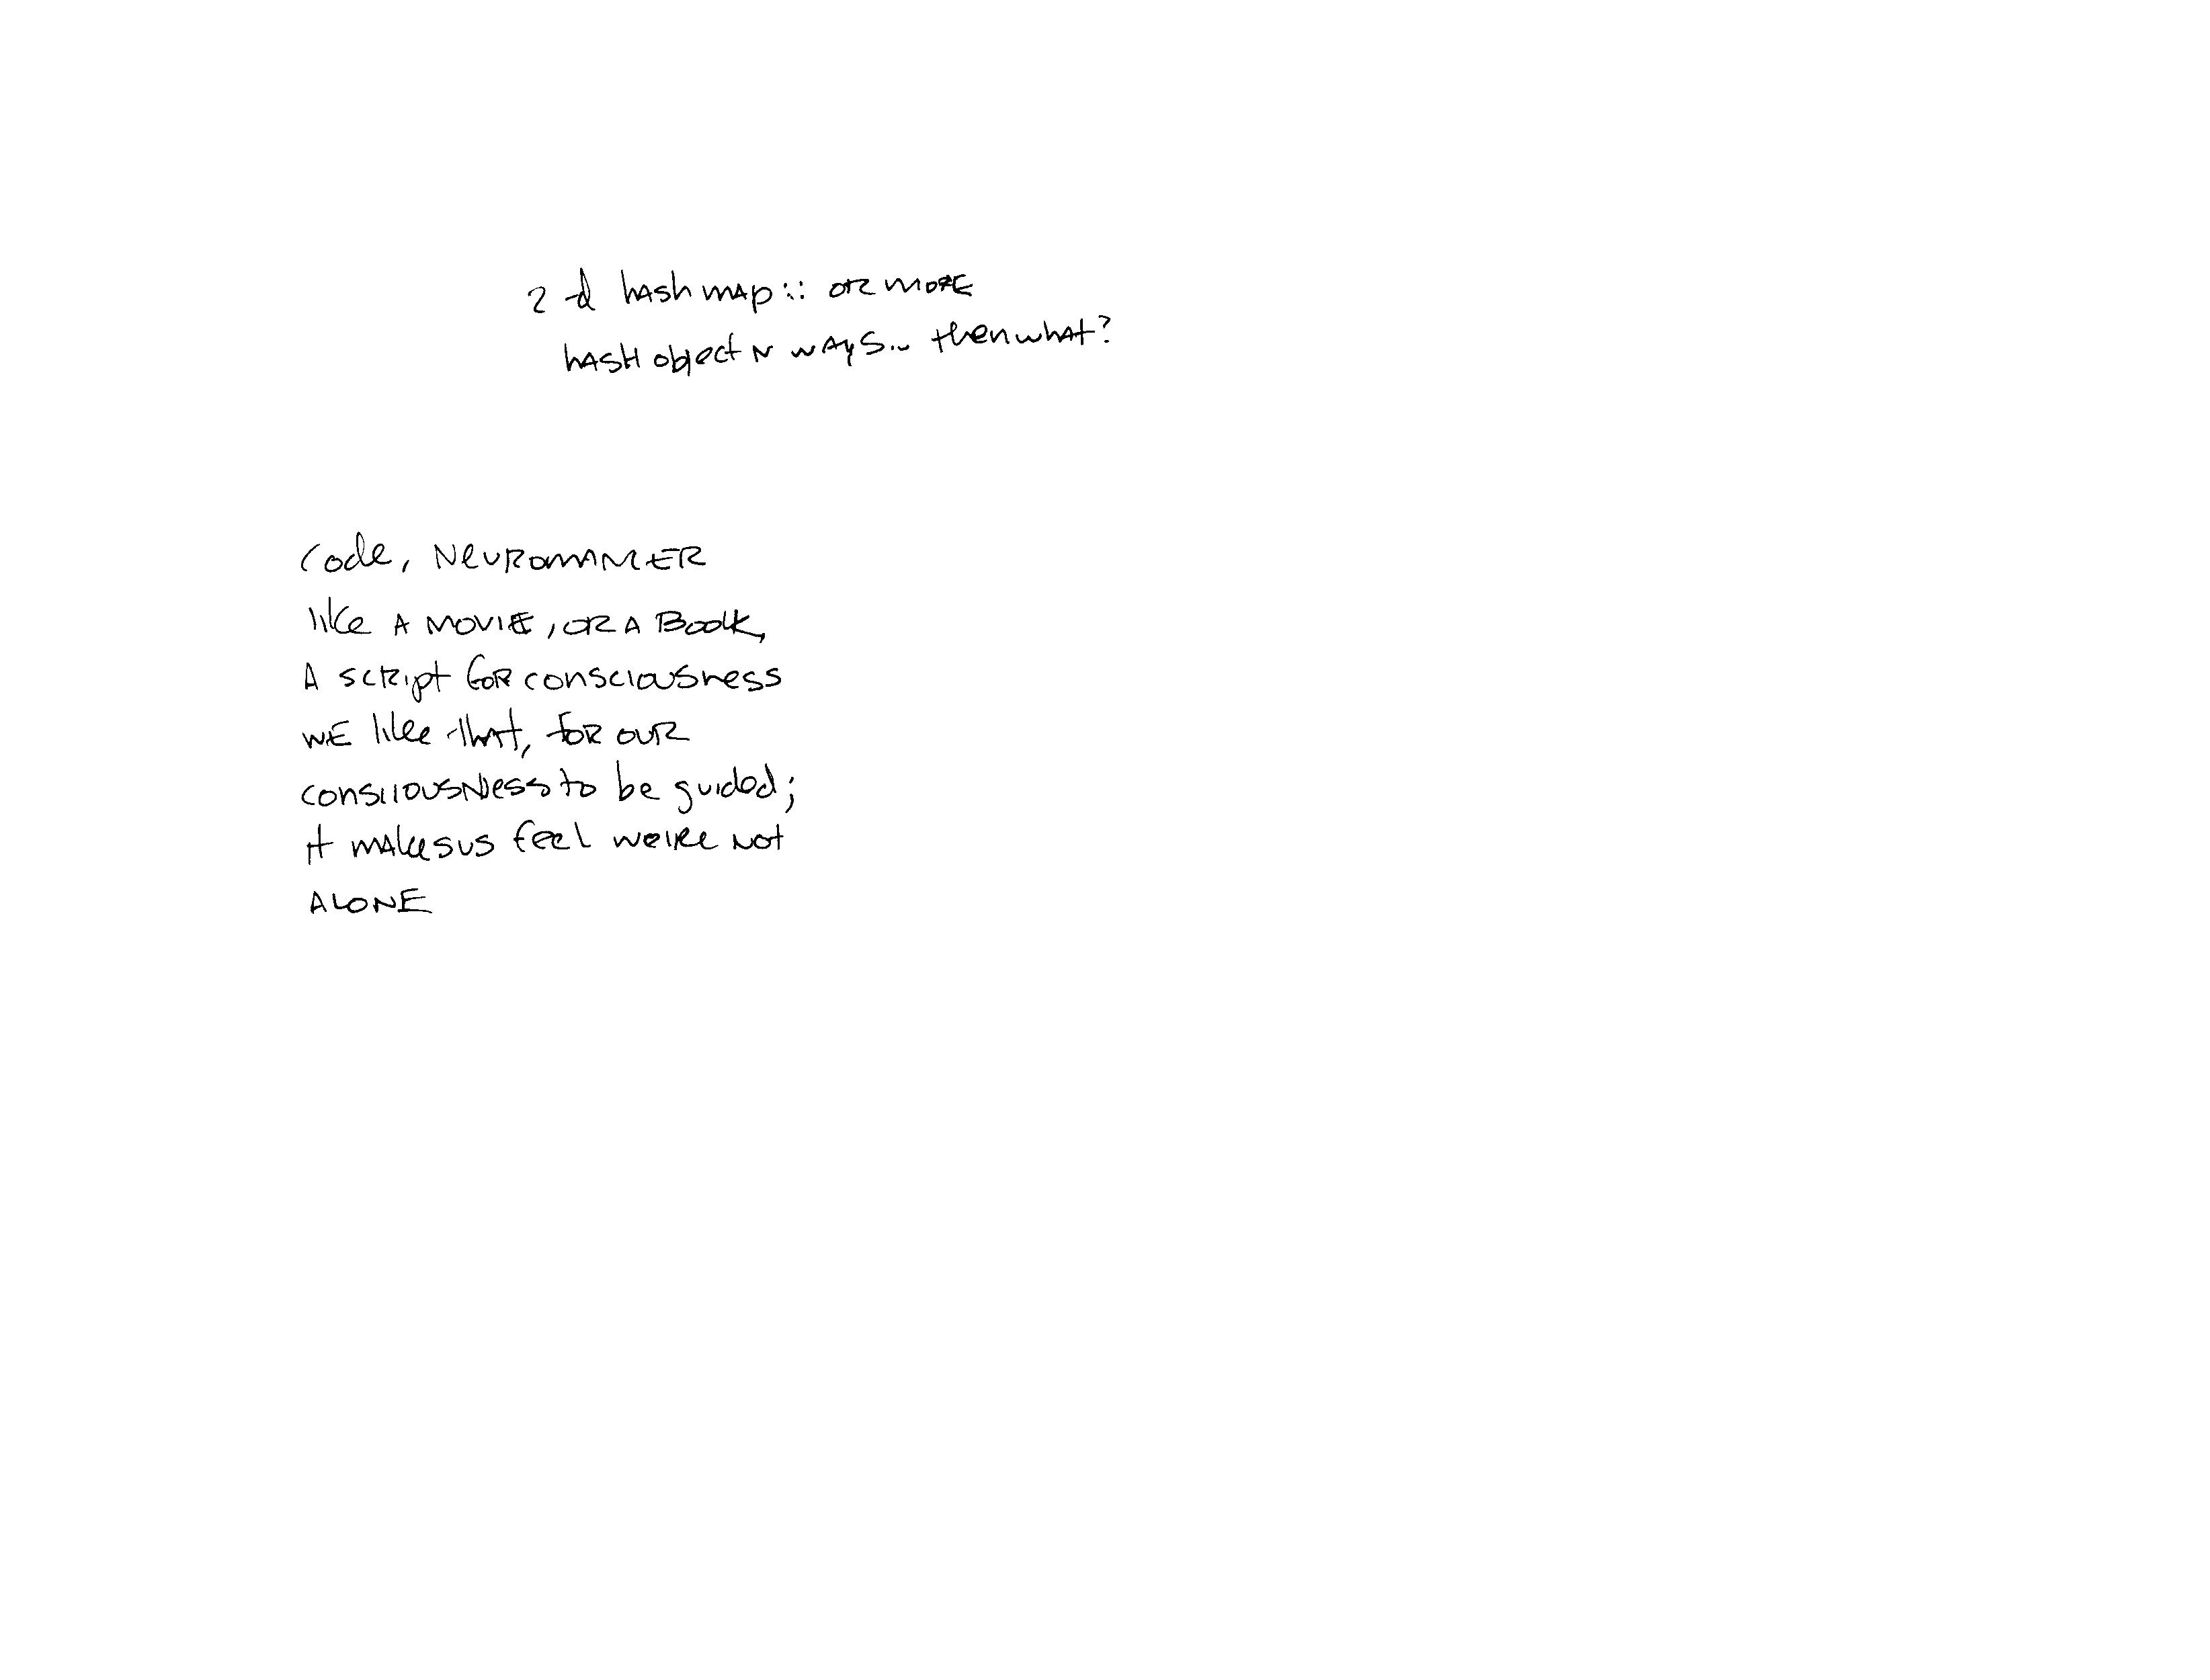 2-d hashmap :: OR MORE
HASH object N WAYS... then what?
Code, NEUROMANCER
like A MOVIE, OR A BOOK,
A SCRIPT FOR consciousness
WE like that, FOR OUR
consciousness to be guided;
it makes us feel we're NOT
ALONE